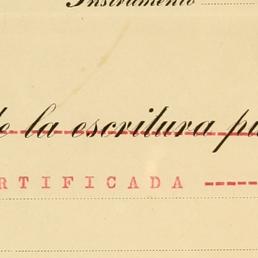 Instrumento
de la escritura pú
RTIFICADA